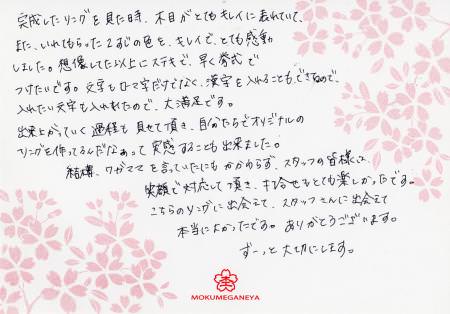 完成したリングを見た時、木目がとてもキレイに表れていて、
また、いれてもらった2人の色も、キレイで、とても感動
しました。想像してた以上にステキで、早く挙式で
つけたいです。文字もローマ字だけでなく、漢字を入れることもできるので、
入れたい文字も入れれたので、大満足です。
出来上がっていく過程も見せて頂き、自分たちでオリジナルの
リングを作ってるんだなぁって実感することも出来ました。
結構、ワガママを言っていたにもかかわらず、スタッフの皆様に
笑顔で対応して頂き、打合せもとても楽しかったです。
こちらのリングに出会えて、スタッフさんに出会えて
本当によかったです。ありがとうございます。
ずーっと大切にします。
MOKUMEGANEYA